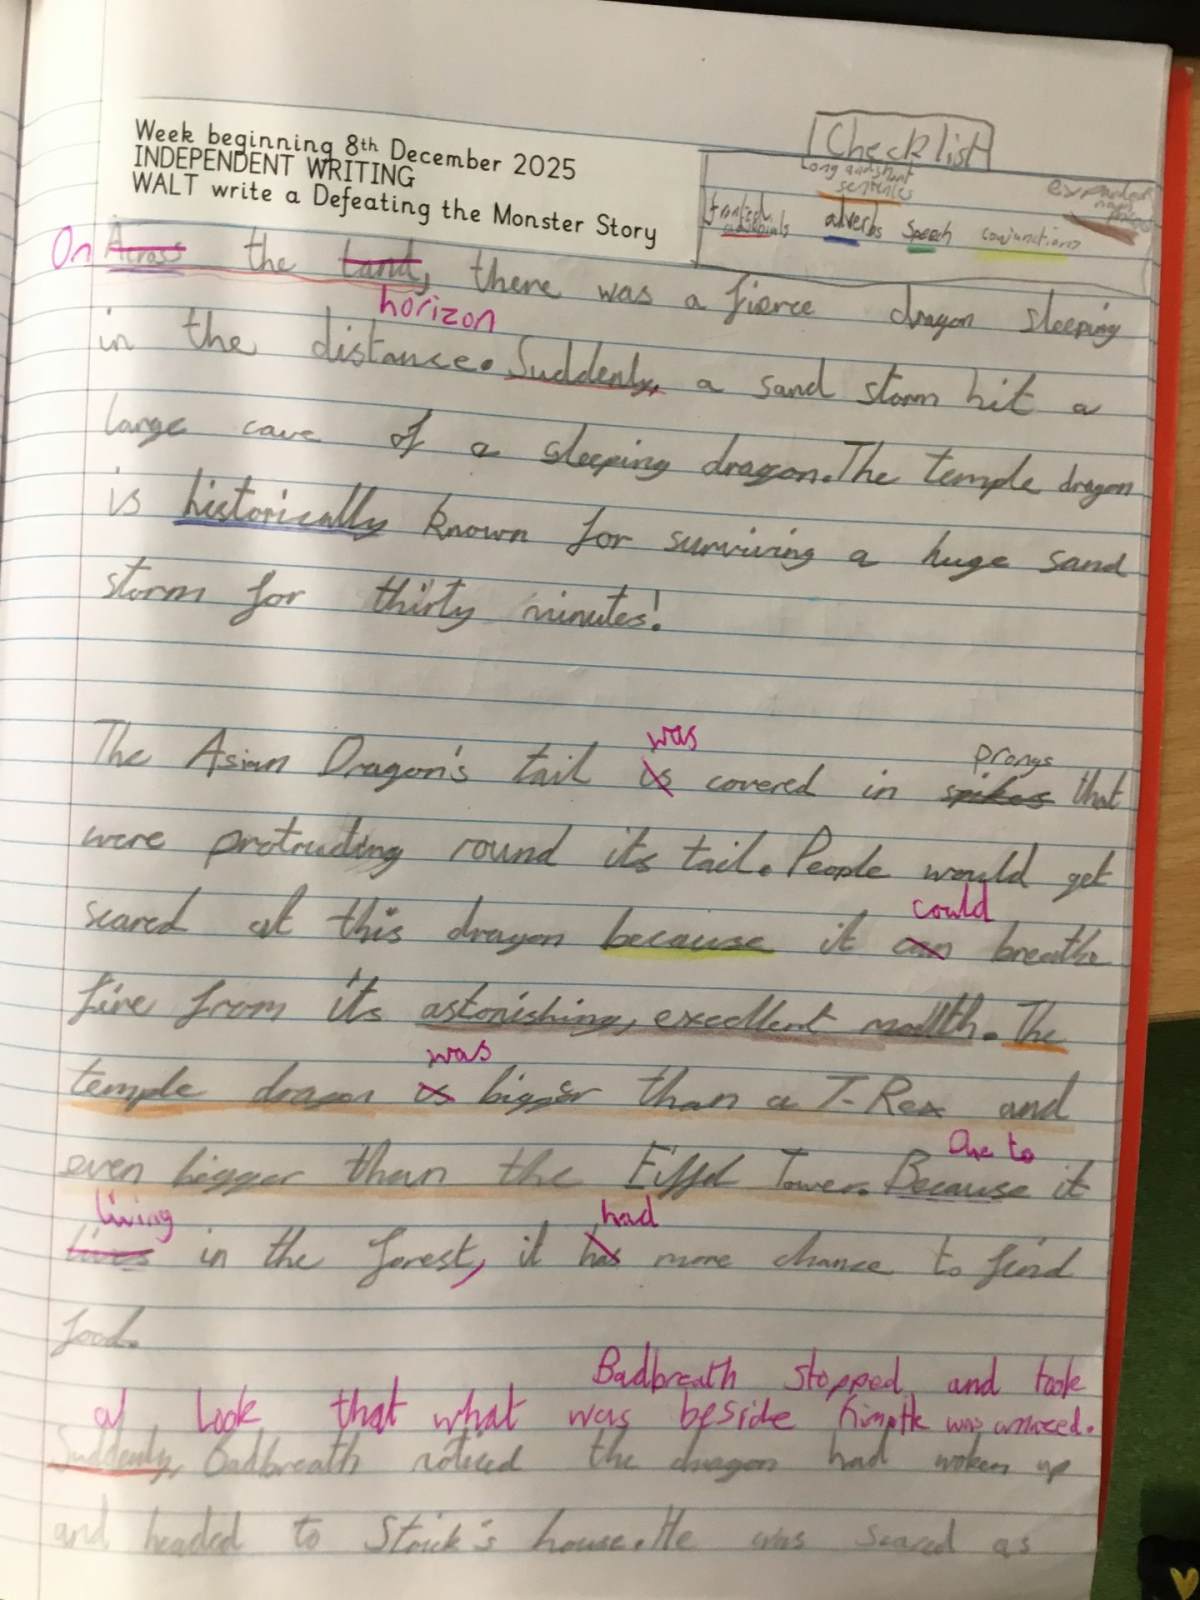 Week beginning 8th December 2025
INDEPENDENT WRITING
WALT write a Defeating the Monster Story
Checklist
Long and short
sentences
expanded
noun
adverbs speech conjunctions
On Across the land, there was a fierce dragon sleeping
horizon
in the distance. Suddenly, a sand storm hit a
large cave of a sleeping dragon. The temple dragon
is historically known for surviving a huge sand
storm for thirty minutes!
was
prongs
The Asian Dragon's tail is covered in spikes that
were protruding round its tail. People would get
could
scared at this dragon because it can breathe
fire from its astonishing, excellent mouth. The
was
temple dragon is bigger than a T-Rex and
Due to
even bigger than the Eiffel Tower. Because it
living had
lives in the forest, it has more chance to find
food.
Badbreath stopped, and took
a look that what was beside him He was amazed.
Suddenly, Badbreath noticed the dragon had woken up
and headed to Stoick's house. He was scared as